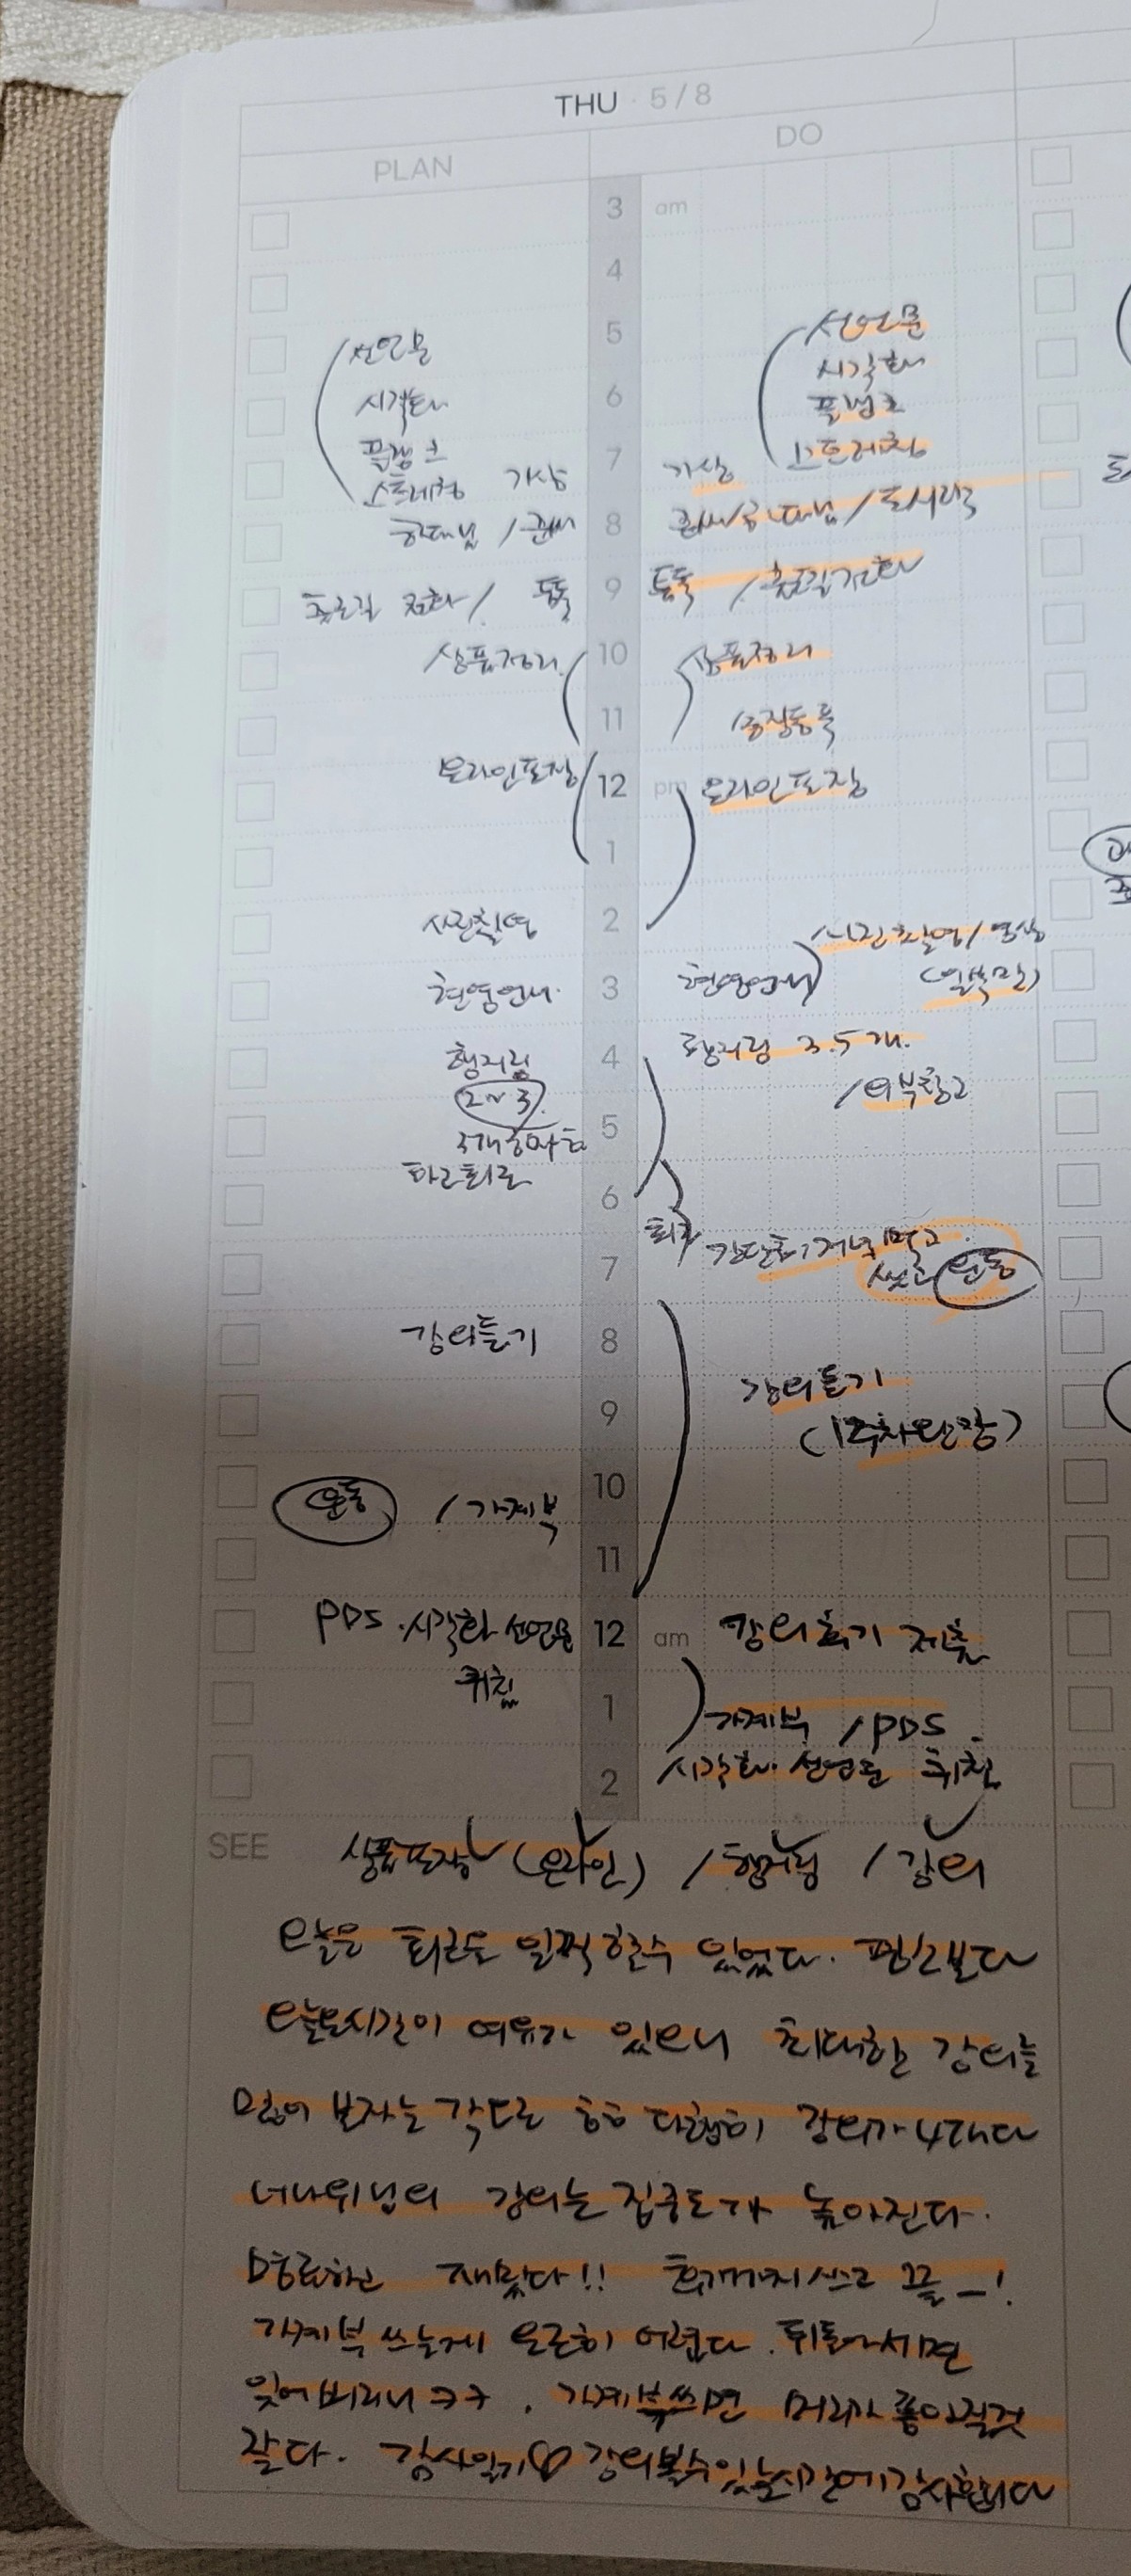 THU · 5/8
PLAN
DO
3 am
4
5
6
7
8
9
10
11
12 pm
1
2
3
4
5
6
7
8
9
10
11
12 am
1
2
선언문
시각화
플랭크
스트레칭 기상
출근길 전화 / 톡톡
상품정리
온라인포장
사진촬영
현영언니
행거링
2~3
퇴근
강의듣기
운동 / 가계부
PDS · 시각화 선언문
취침
선언문
시각화
플랭크
스트레칭
기상
톡톡 / 출근길전화
상품정리
온라인포장
사진촬영 / 영상
현영언니 (일부만)
행거링 3.5개.
/ 외부창고
퇴근 간단히 저녁먹고
씻고 운동
강의듣기
(1주차완강)
강의후기 제출
가계부 / PDS
시각화 · 선언문 취침
SEE
상품포장 (온라인) / 행거링 / 강의
오늘은 퇴근도 일찍할수 있었다. 평소보다
오늘은시간이 여유가 있으니 최대한 강의를
많이 보자는 각도로 강의가 4개다
너나위님의 강의는 집중도가 높아진다.
명료하고 재밌다!! 후기까지쓰고 끝_!
가계부 쓰는게 은근히 어렵다. 뒤돌아서면
잊어버리니 ㅋㅋ. 가계부쓰면 머리가 좋아질것
같다. 감사일기♡ 강의볼수있는시간에감사합니다